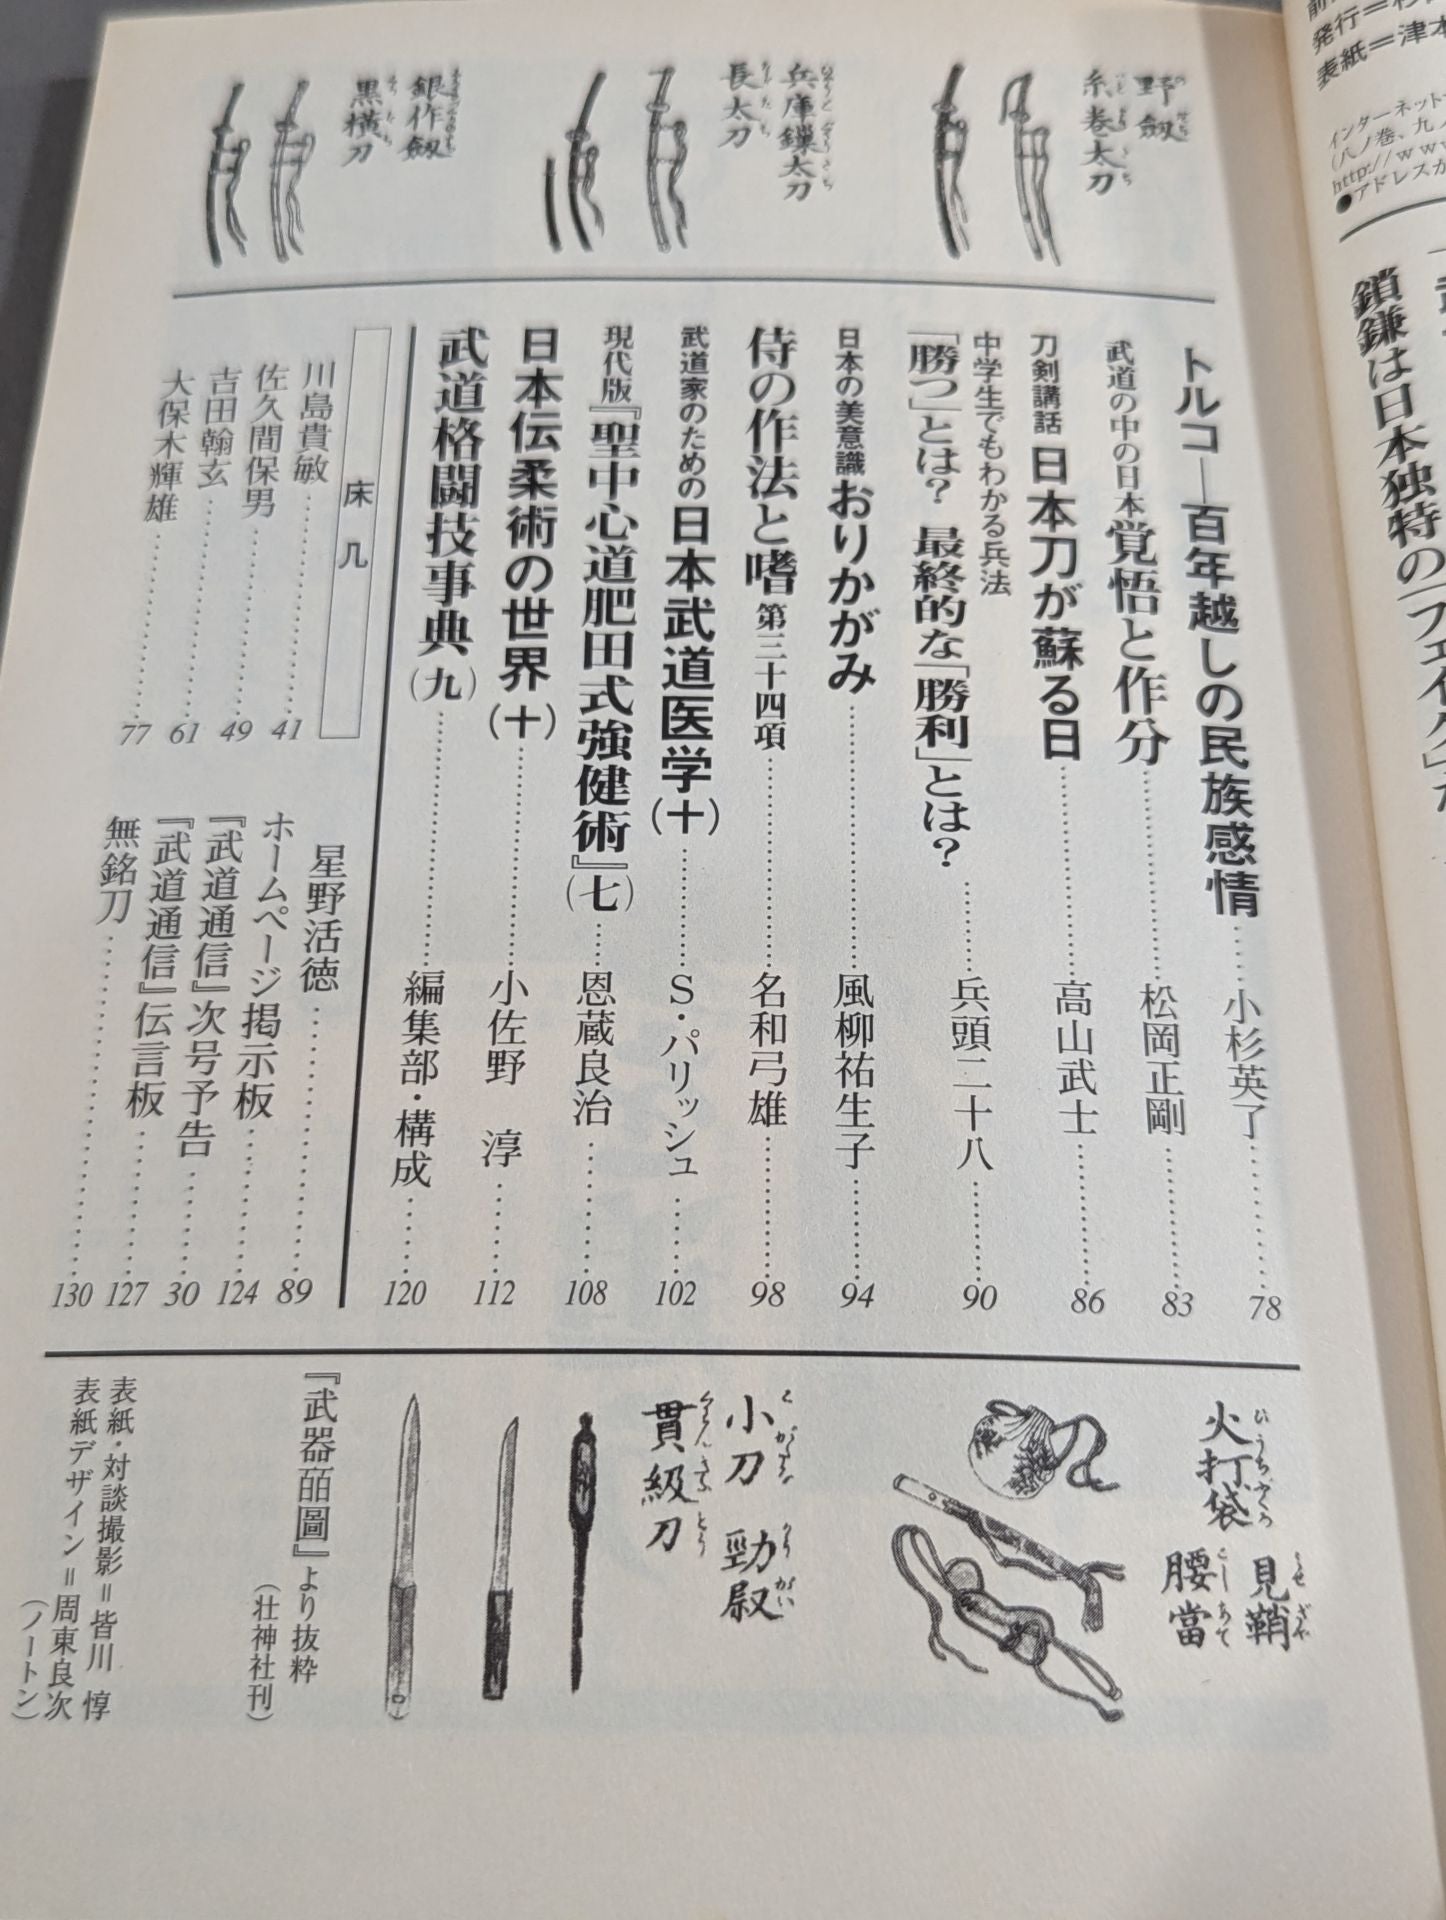 発行＝
表紙＝津本
インターネット
(八ノ巻、九ノ
http://www
●アドレスが
鎖鎌は日本独特の「フェイク」
野劔
糸巻太刀
兵庫鏁太刀
長太刀
銀作劔
黒横刀
トルコ―百年越しの民族感情……小杉英了……78
武道の中の日本 覚悟と作分……松岡正剛……83
刀剣講話 日本刀が蘇る日……高山武士……86
中学生でもわかる兵法
「勝つ」とは？ 最終的な「勝利」とは？……兵頭二十八……90
日本の美意識 おりかがみ……風柳祐生子……94
侍の作法と嗜 第三十四項……名和弓雄……98
武道家のための日本武道医学(十)……S・パリッシュ……102
現代版『聖中心道肥田式強健術』(七)……恩蔵良治……108
日本伝柔術の世界(十)……小佐野　淳……112
武道格闘技事典(九)……編集部・構成……120
床几
川島貴敏……41
佐久間保男……49
吉田翰玄……61
大保木輝雄……77
星野活徳……89
ホームページ掲示板……124
『武道通信』次号予告……30
『武道通信』伝言板……127
無銘刀……130
火打袋 見鞘
ひうちぶくろ
腰當
こしあて
小刀 勁尉
貫級刀
『武器皕圖』より抜粋
(壮神社刊)
表紙・対談撮影＝皆川 惇
表紙デザイン＝周東良次
(ノートン)